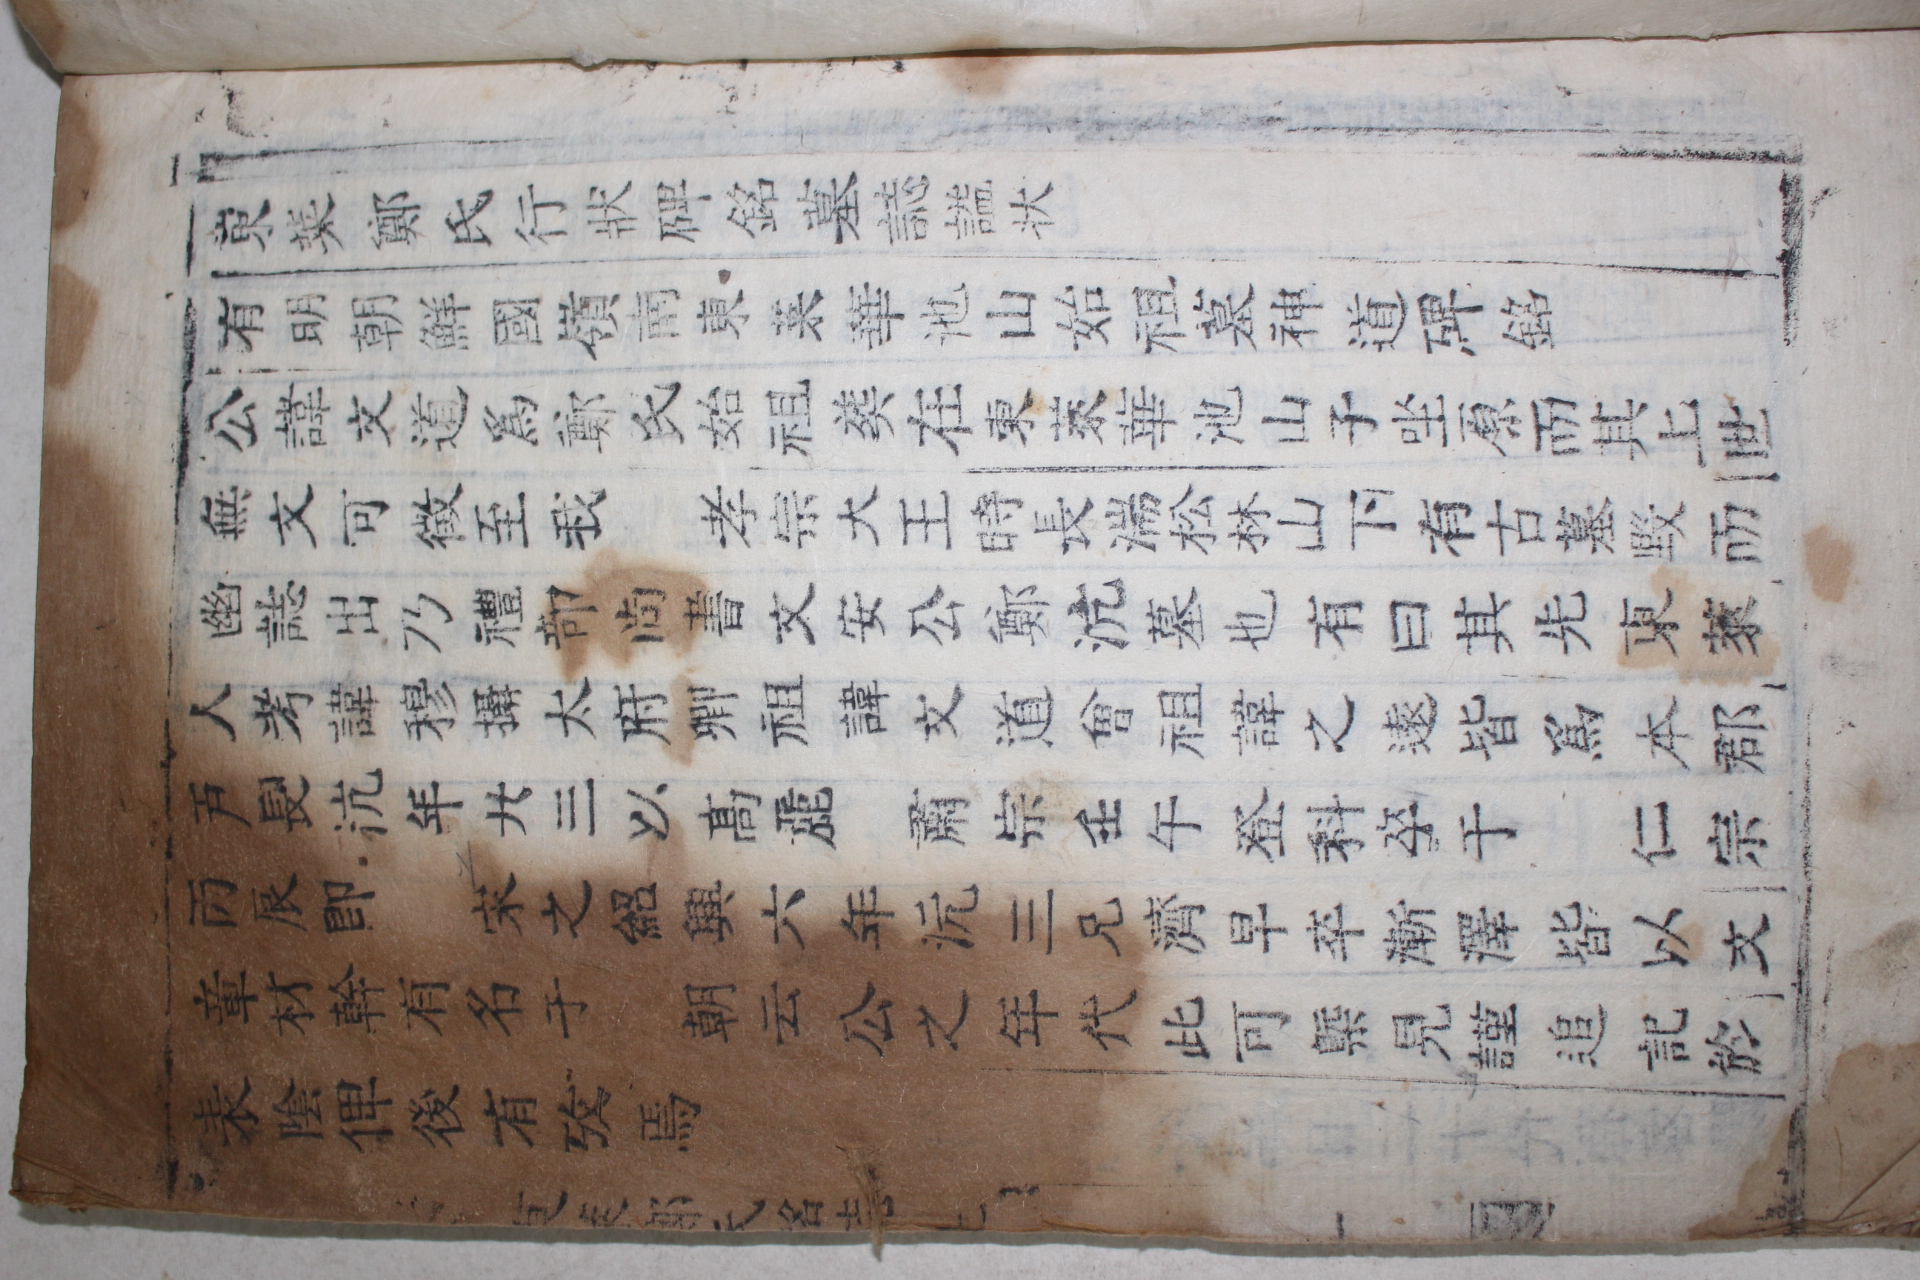 東萊鄭氏行狀碑銘墓誌謚狀
有明朝鮮國嶺南東萊華池山始祖墓神道碑銘
公諱文道爲鄭氏始祖葬在東萊華池山子坐原而其上世
無文可徵至我 孝宗大王時長湍松林山下有古墓毀而
幽誌出乃禮部尚書文安公鄭沆墓也有曰其先東萊
人考諱穆攝太府卿祖諱文道曾祖諱之遠皆爲本郡
戶長沆年廿三以高麗 肅宗壬午登科卒于 仁宗
丙辰即 宋之紹興六年沆三兄濟早卒漸澤皆以文
章材幹有名于 朝云公之年代此可槩見謹追記於
表陰俾後有攷焉